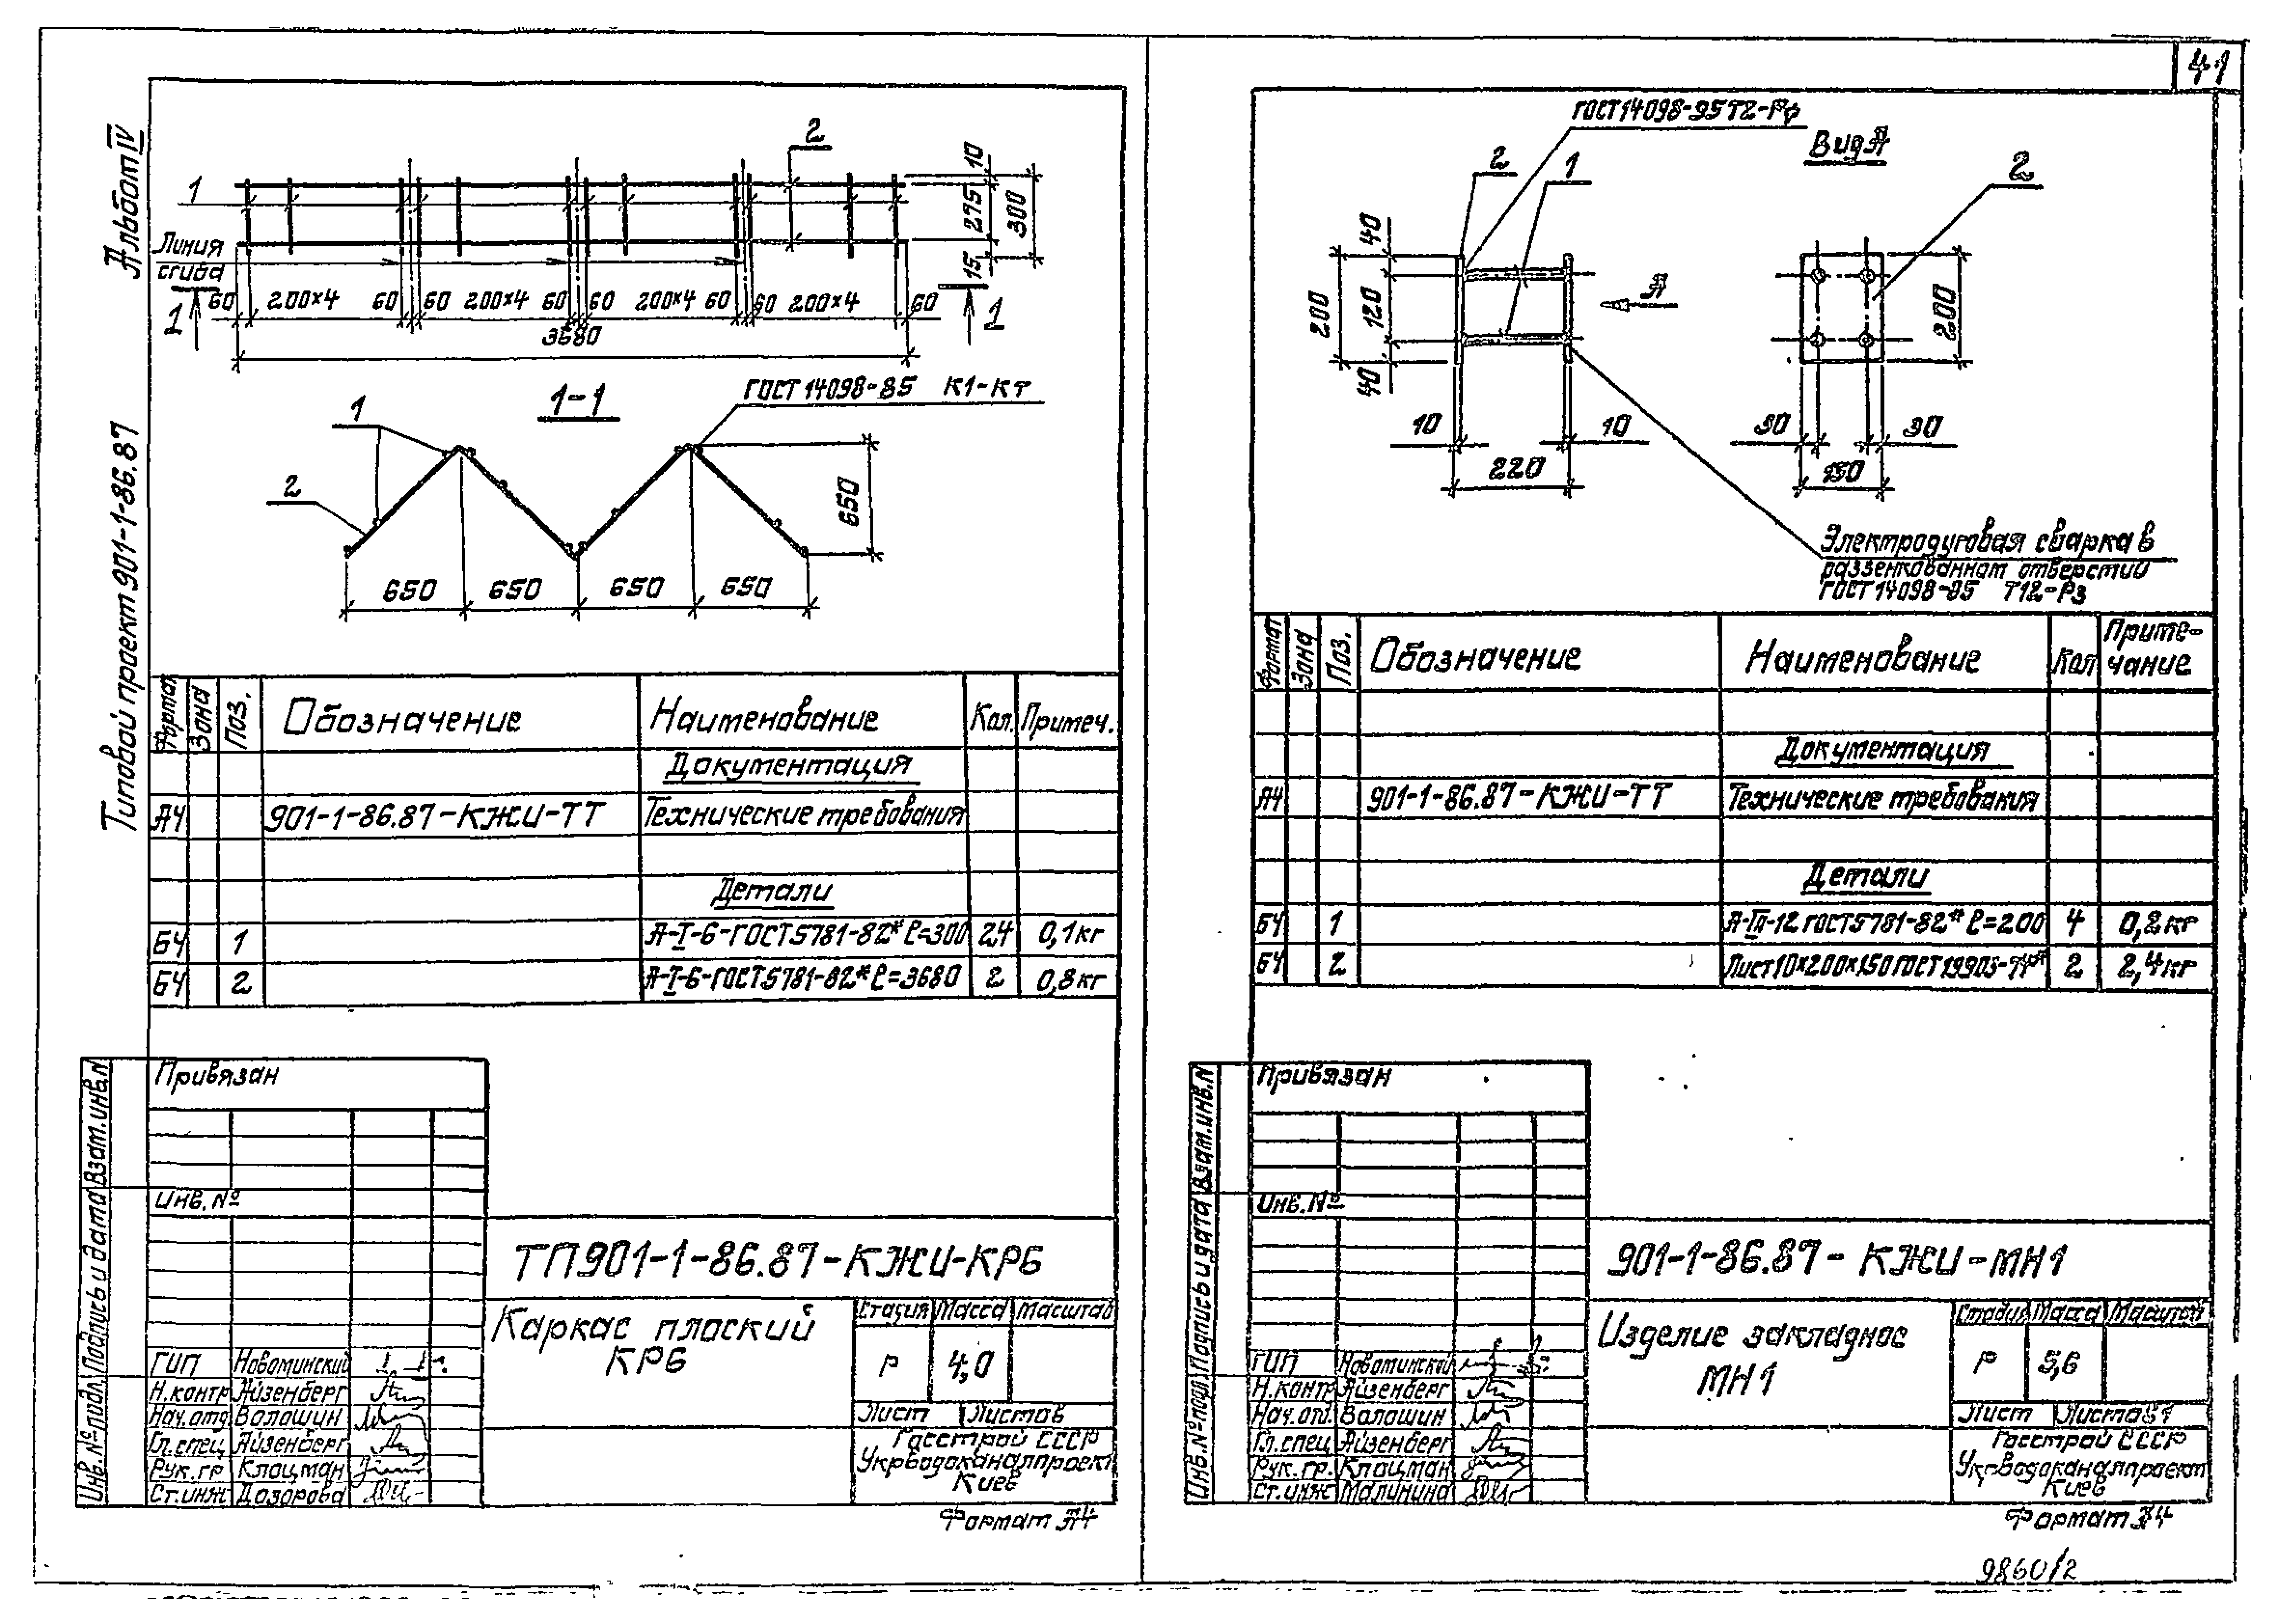 41
Альбом IV
Типовой проект 901-1-86.87
2
1
Линия
сгиба
10
275
300
15
60 200×4 60 60 200×4 60 60 200×4 60 60 200×4 60
3680
1 1
1-1
ГОСТ 14098-85 К1-Кт
1
2
650
650 650 650 650
Формат Зона Поз. Обозначение Наименование Кол. Примеч.
Документация
А4 901-1-86.87-КЖИ-ТТ Технические требования
Детали
БЧ 1 А-I-6-ГОСТ5781-82* ℓ=300 24 0,1кг
БЧ 2 А-I-6-ГОСТ5781-82* ℓ=3680 2 0,8кг
Привязан
Инв.№
Взам.инв.N
Подпись и дата
Инв.№ подл.
ТП901-1-86.87-КЖИ-КР6
Каркас плоский
КР6
Стадия Масса Масштаб
Р 4,0
Лист Листов
Госстрой СССР
Укрводоканалпроект
Киев
ГИП Новоминский
Н.контр Айзенберг
Нач.отд. Волошин
Гл.спец Айзенберг
Рук.гр Клоцман
Ст.инж Дозорова
Формат А4
ГОСТ 14098-95 Т2-Рф
Вид А
2
1
2
40
200
120
40
А
200
10
10
220
30
30
150
Электродуговая сварка в
раззенкованном отверстии
ГОСТ 14098-85 Т12-Рз
Формат Зона Поз. Обозначение Наименование Кол Приме-
чание
Документация
А4 901-1-86.87-КЖИ-ТТ Технические требования
Детали
БЧ 1 А-III-12 ГОСТ5781-82* ℓ=200 4 0,2кг
БЧ 2 Лист10×200×150 ГОСТ 19903-74* 2 2,4кг
Привязан
Инв.№
Взам.инв.N
Подпись и дата
Инв.№ подл
901-1-86.87-КЖИ-МН1
Изделие закладное
МН1
Стадия Масса Масштаб
Р 5,6
Лист Листов 1
Госстрой СССР
Укрводоканалпроект
Киев
ГИП Новоминский
Н.контр Айзенберг
Нач.отд. Волошин
Гл.спец Айзенберг
Рук.гр. Клоцман
Ст.инж Малинина
Формат А4
9860/2